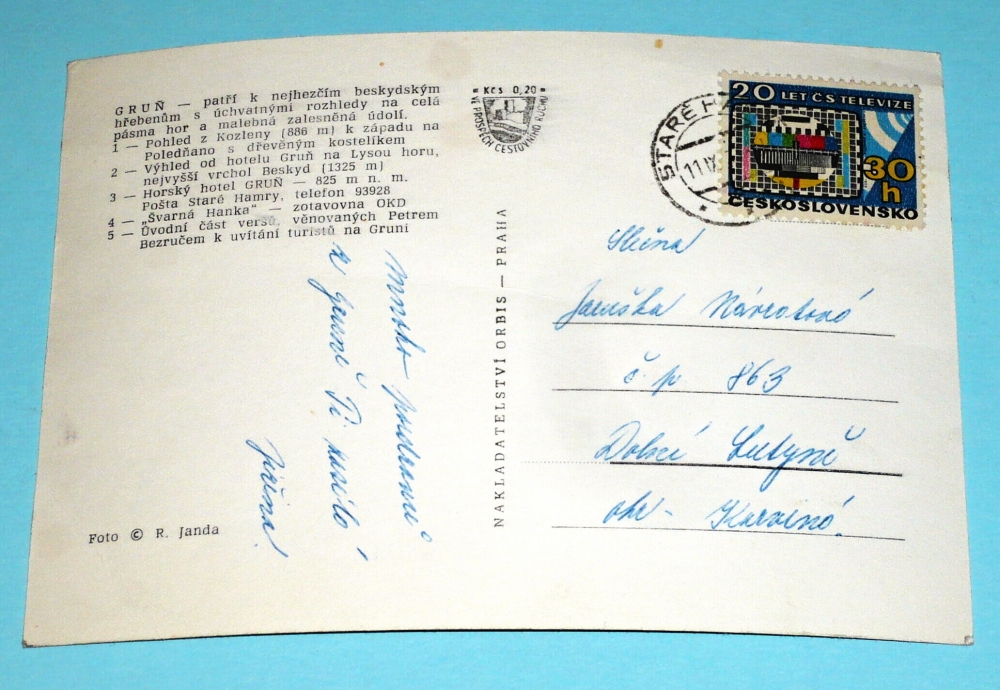 GRUŇ — patří k nejhezčím beskydským
hřebenům s úchvatnými rozhledy na celá
pásma hor a malebná zalesněná údolí.
1 — Pohled z Kozleny (886 m) k západu na
Poledňano s dřevěným kostelíkem
2 — Výhled od hotelu Gruň na Lysou horu,
nejvyšší vrchol Beskyd (1325 m)
3 — Horský hotel GRUŇ — 825 m n. m.
Pošta Staré Hamry, telefon 93928
4 — „Švarná Hanka" — zotavovna OKD
5 — Úvodní část veršů, věnovaných Petrem
Bezručem k uvítání turistů na Gruni
Kčs 0,20
VE PROSPĚCH CESTOVNÍHO RUCHU
STARÉ H
11.IX
20 LET ČS TELEVIZE
30 h
ČESKOSLOVENSKO
Mnoho pozdravů
z Gruně Ti zasílá
Jiřina
NAKLADATELSTVÍ ORBIS — PRAHA
Slečna
Jaruška
č. p. 863
Dolní Lutyně
okr. Karviná
Foto © R. Janda